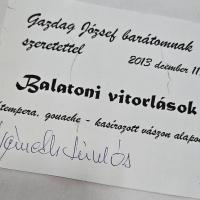 Gazdag József barátomnak
szeretettel
2013 decem 11
Balatoni vitorlások
tempera, gouache - kasírozott vászon alapo